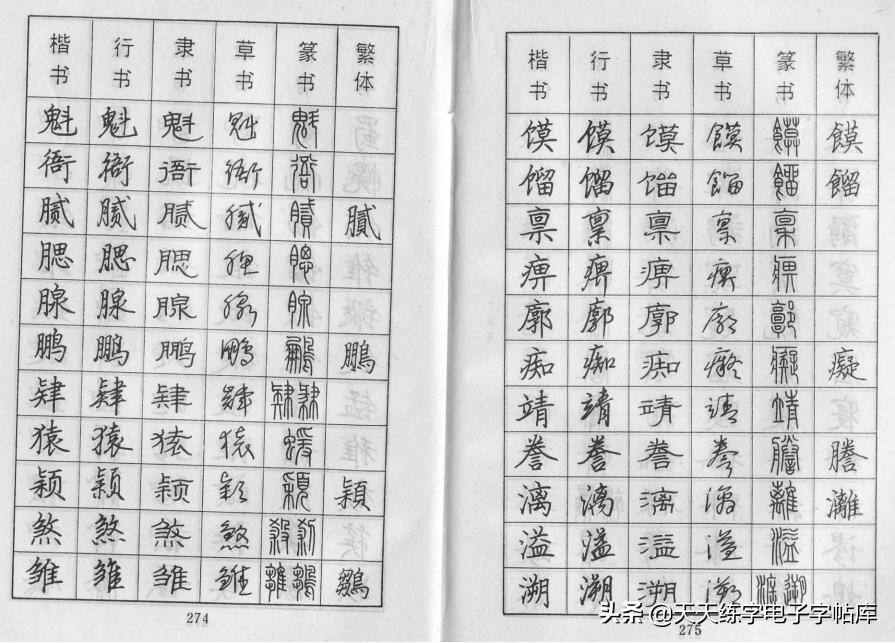 楷书 行书 隶书 草书 篆书 繁体
魁 魁 魁 魁 魁
衙 衙 衙 衙 衙
腻 腻 腻 腻 腻 膩
腮 腮 腮 腮 腮
腺 腺 腺 腺 腺
鹏 鹏 鹏 鹏 鹏 鵬
肄 肄 肄 肄 肄
猿 猿 猿 猿 猿
颖 颖 颖 颖 颖 穎
煞 煞 煞 煞 煞
雏 雏 雏 雏 雏 鶵
274
楷书 行书 隶书 草书 篆书 繁体
馍 馍 馍 馍 馍 饃
馏 馏 馏 馏 馏 餾
禀 禀 禀 禀 禀
痹 痹 痹 痹 痹
廓 廓 廓 廓 廓
痴 痴 痴 癡 癡 癡
靖 靖 靖 靖 靖
誊 誊 誊 誊 謄 謄
漓 漓 漓 漓 灕 灕
溢 溢 溢 溢 溢
溯 溯 溯 溯 溯
275
头条 @天天练字电子字帖库